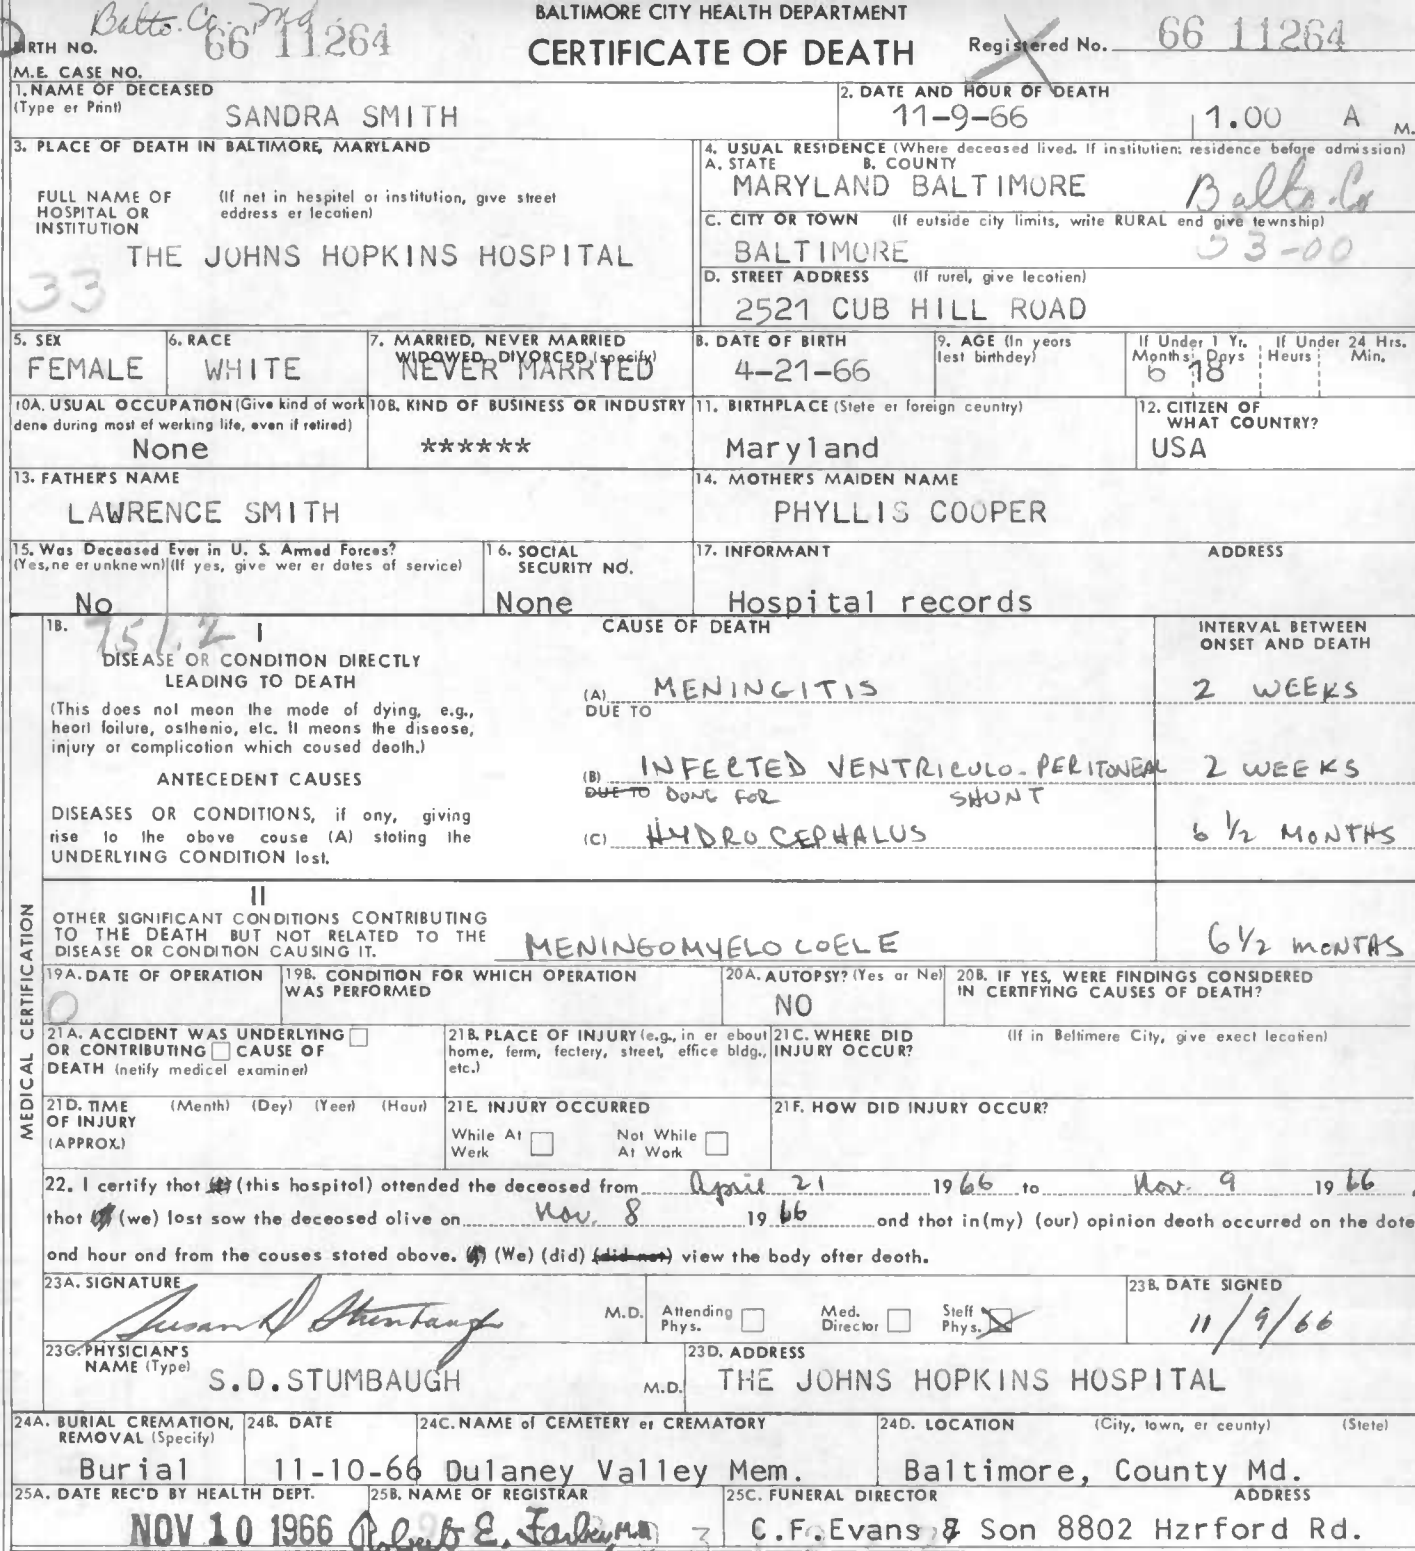 Balto. Co. Md
BALTIMORE CITY HEALTH DEPARTMENT
RTH NO. 66 11264
CERTIFICATE OF DEATH
Registered No. 66 11264
M.E. CASE NO.
1. NAME OF DECEASED
(Type er Print)
SANDRA SMITH
2. DATE AND HOUR OF DEATH
11-9-66 1.00 A M.
3. PLACE OF DEATH IN BALTIMORE, MARYLAND
FULL NAME OF HOSPITAL OR INSTITUTION
(If net in hespitel or institution, give street eddress er lecotien)
THE JOHNS HOPKINS HOSPITAL
33
4. USUAL RESIDENCE (Where deceased lived. If institutien: residence before admission)
A. STATE B. COUNTY
MARYLAND BALTIMORE Balto. Co
C. CITY OR TOWN (If eutside city limits, write RURAL end give tewnship)
BALTIMORE 53-00
D. STREET ADDRESS (If rurel, give lecotien)
2521 CUB HILL ROAD
5. SEX
FEMALE
6. RACE
WHITE
7. MARRIED, NEVER MARRIED
WIDOWED, DIVORCED (specify)
NEVER MARRIED
8. DATE OF BIRTH
4-21-66
9. AGE (In yeors lest birthdey)
If Under 1 Yr. If Under 24 Hrs.
Months Doys Heurs Min.
6 18
10A. USUAL OCCUPATION (Give kind of work
dene during most ef werking life, even if retired)
None
10B. KIND OF BUSINESS OR INDUSTRY
******
11. BIRTHPLACE (Stete er foreign ceuntry)
Maryland
12. CITIZEN OF
WHAT COUNTRY?
USA
13. FATHER'S NAME
LAWRENCE SMITH
14. MOTHER'S MAIDEN NAME
PHYLLIS COOPER
15. Was Deceased Ever in U. S. Armed Forces?
(Yes, ne er unknewn) (If yes, give wer er dates of service)
No
16. SOCIAL
SECURITY NO.
None
17. INFORMANT ADDRESS
Hospital records
MEDICAL CERTIFICATION
18. 751.2 I
CAUSE OF DEATH
INTERVAL BETWEEN
ONSET AND DEATH
DISEASE OR CONDITION DIRECTLY
LEADING TO DEATH
(This does not meon the mode of dying, e.g.,
heort foilure, osthenio, etc. It meons the diseose,
injury or complicotion which coused deoth.)
(A) MENINGITIS 2 WEEKS
DUE TO
ANTECEDENT CAUSES
DISEASES OR CONDITIONS, if ony, giving
rise to the obove couse (A) stoting the
UNDERLYING CONDITION lost.
(B) INFECTED VENTRICULO-PERITONEAL 2 WEEKS
DUE TO DONE FOR SHUNT
(C) HYDROCEPHALUS 6 1/2 MONTHS
II
OTHER SIGNIFICANT CONDITIONS CONTRIBUTING
TO THE DEATH BUT NOT RELATED TO THE
DISEASE OR CONDITION CAUSING IT.
MENINGOMYELOCOELE 6 1/2 MONTHS
19A. DATE OF OPERATION
0
19B. CONDITION FOR WHICH OPERATION
WAS PERFORMED
20A. AUTOPSY? (Yes or Ne)
NO
20B. IF YES, WERE FINDINGS CONSIDERED
IN CERTIFYING CAUSES OF DEATH?
21A. ACCIDENT WAS UNDERLYING
OR CONTRIBUTING CAUSE OF
DEATH (netify medicel exominer)
21B. PLACE OF INJURY (e.g., in er ebout
home, ferm, fectery, street, effice bldg.,
etc.)
21C. WHERE DID
INJURY OCCUR?
(If in Beltimere City, give exect lecotien)
21D. TIME
OF INJURY
(APPROX.)
(Month) (Dey) (Yeer) (Hour)
21E. INJURY OCCURRED
While At Werk
Not While At Work
21F. HOW DID INJURY OCCUR?
22. I certify thot (this hospitol) ottended the deceosed from April 21 1966 to Nov. 9 1966,
thot (we) lost sow the deceosed olive on Nov. 8 1966 ond thot in(my) (our) opinion deoth occurred on the dote
ond hour ond from the couses stoted obove. (We) (did) (did not) view the body ofter deoth.
23A. SIGNATURE
Susan D Stumbaugh M.D.
Attending Phys.
Med. Director
Steff Phys.
23B. DATE SIGNED
11/9/66
23C. PHYSICIAN'S
NAME (Type)
S.D.STUMBAUGH M.D.
23D. ADDRESS
THE JOHNS HOPKINS HOSPITAL
24A. BURIAL CREMATION,
REMOVAL (Specify)
Burial
24B. DATE
11-10-66
24C. NAME of CEMETERY er CREMATORY
Dulaney Valley Mem.
24D. LOCATION (City, town, er ceunty) (Stete)
Baltimore, County Md.
25A. DATE REC'D BY HEALTH DEPT.
NOV 10 1966
25B. NAME OF REGISTRAR
Robert E. Farber, M.D.
25C. FUNERAL DIRECTOR ADDRESS
C.F.Evans & Son 8802 Hzrford Rd.